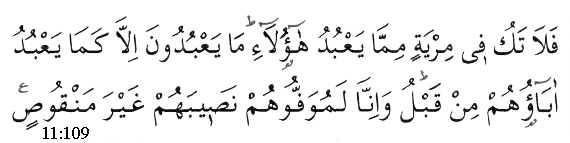 فَلَا تَكُ فِى مِرْيَةٍ مِمَّا يَعْبُدُ هٰٓؤُلَٓاءِۜ مَا يَعْبُدُونَ اِلَّا كَمَا يَعْبُدُ
اٰبَٓاؤُ۬هُمْ مِنْ قَبْلُۜ وَاِنَّا لَمُوَفُّوهُمْ نَص۪يبَهُمْ غَيْرَ مَنْقُوصٍ۟
11:109